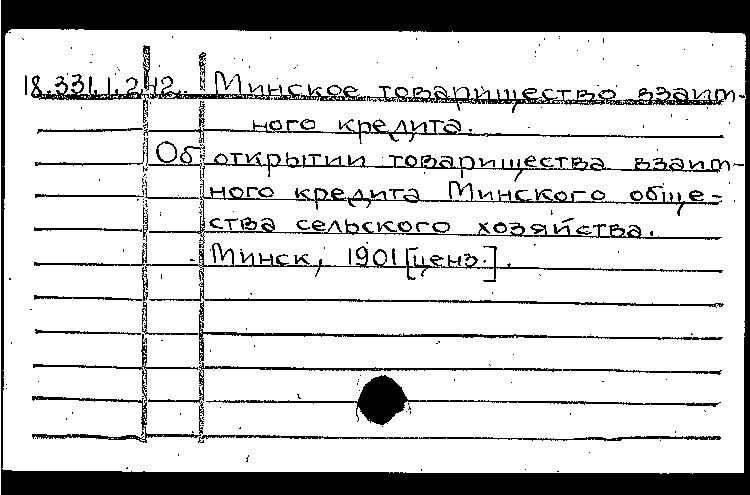 18.331.1.242. Минское товарищество взаим-
ного кредита.
Об открытии товарищества взаим-
ного кредита Минского обще-
ства сельского хозяйства.
Минск, 1901 [ценз.].